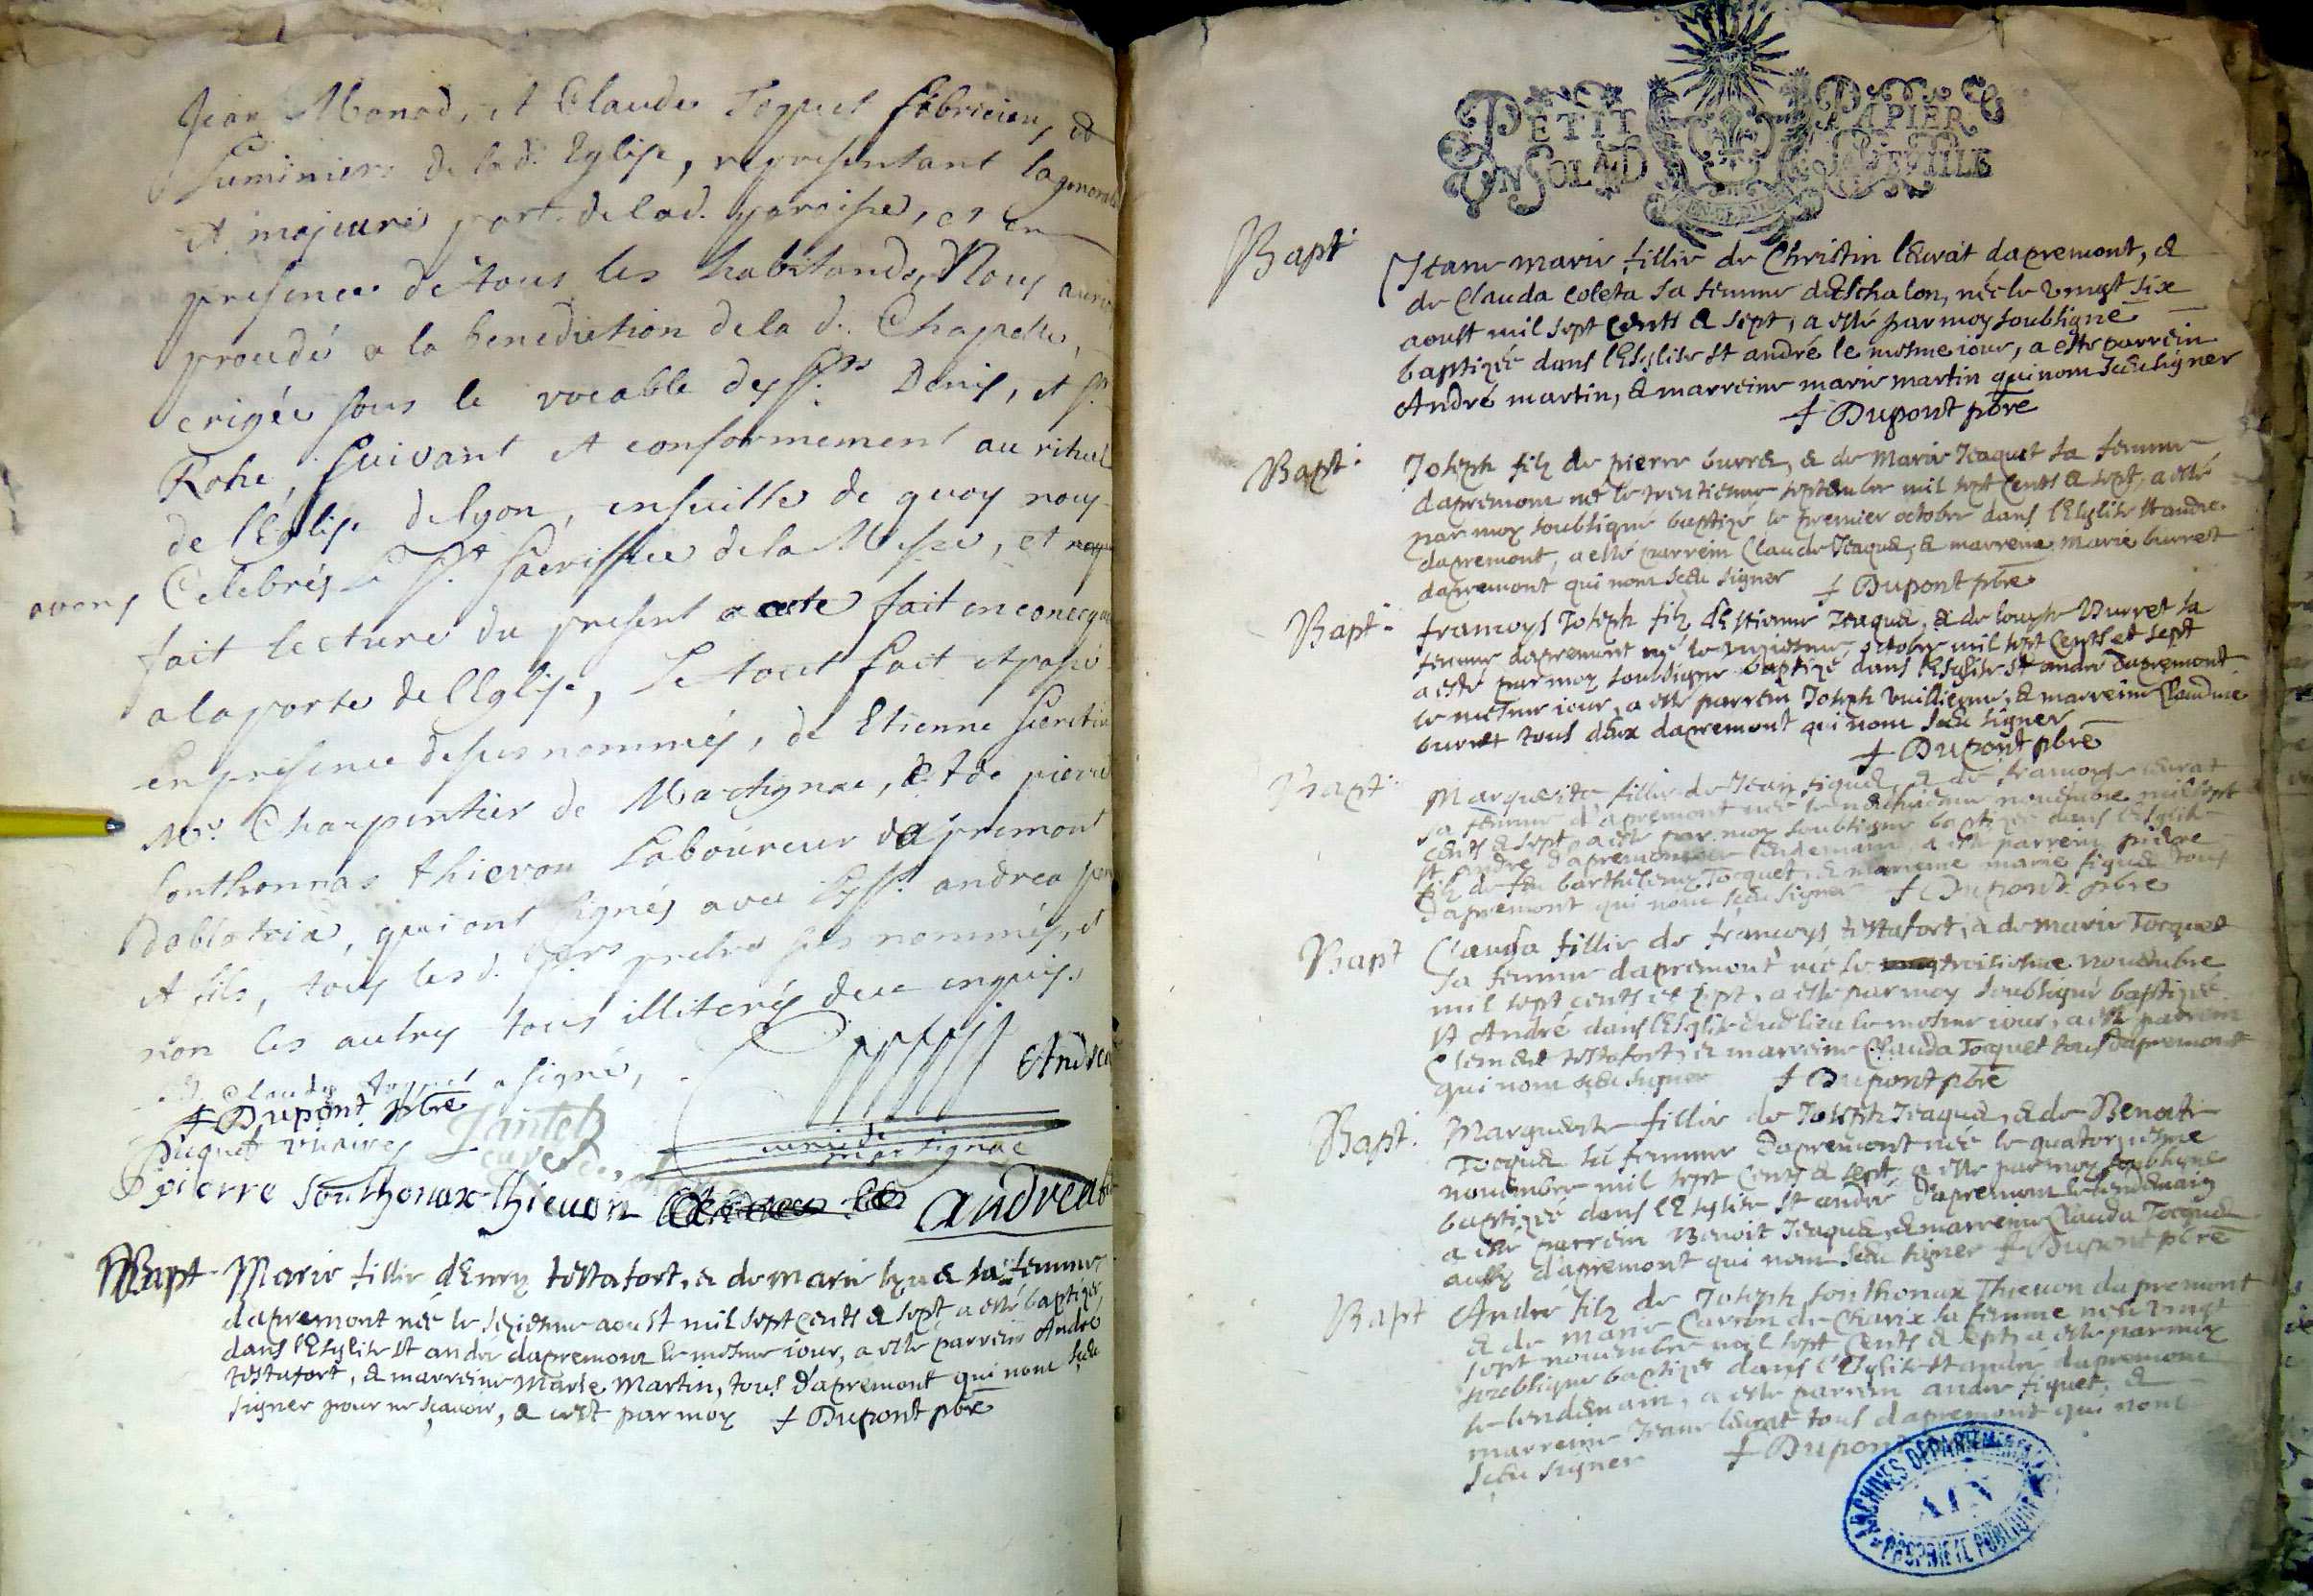 Jean Monod, et Claude Toquet fabriciens et
Luminiers de lad. Eglise, representant la generale
et majeure part de lad. paroisse, et en
presence de tous les habitands, Nous avons
procedé a la benediction de la d. Chapelle,
erigée sous le vocable des Sts Denis, et St
Roche, suivant et conformement au rituel
de l'Eglise de lyon, ensuitte de quoy nous
avons Celebrés le St Sacriffice de la Messe, et
fait lecture du present acte fait en
a la porte de l'Eglise, Le tout fait et passé
en presence desus nommés, de Etienne
Mr. Charpentier de Martignac, et de pierre
Sonthonnas thievon Laboureur d'apremont
qui ont signés avec andrea pere
et fils, tous les d. Srs pretres sus nommés, et
non les autres tous illiterés de ce enquis.
et Claude toquet a signé,
Andrea
+ Dupont pbre
Piquet vicaire
Jantet
curé de
curé de
martignac
pierre Sonthonax thievon
andrea
Bapt Marie fillie d'Enry testafort, & de marie sa femme
dapremont née le seziesme aoust mil sept cents & sept a esté baptizée
dans l'Esglise St andré dapremont le mesme iour, a esté parrein André
testafort, & marreine Marie Martin, tous d'apremont qui nont sceu
signer pour ne sçavoir, & c'est par moy + Dupont pbre
PETIT PAPIER
UN SOL LA DEMIE FEUILLE
Bapt. Jeane marie fillie de Christin leurat dapremont, &
de Clauda coleta sa femme d'Eschalon, née le vingt six
aoust mil sept cents & sept, a esté par moy soubsigné
baptizée dans l'Esglise St andré le mesme iour, a esté parrein
André martin, & marreine marie martin qui nont sceu signer
+ Dupont pbre
Bapt. Joseph filz de pierre burret, & de Marie Jeaquet sa femme
dapremont né le trentiesme septembre mil sept cents & sept, a esté
par moy soubsigné baptizé le premier octobre dans l'Esglise St andre
dapremont, a esté parrein Claude Jeaquet, & marreine Marie burret
dapremont qui nont sceu signer + Dupont pbre
Bapt. francoys Joseph filz d'Estienne Jeaquet, & de louyse Burret sa
femme dapremont né le octobre mil sept cents et sept
a esté par moy soubsigné baptizé dans l'Esglise St andré dapremont
le mesme iour, a esté parrein Joseph Vuillierme, & marreine Claudine
burret tous deux dapremont qui nont sceu signer
+ Dupont pbre
Bapt. Marguerite fillie de Jean figuet, & de francoyse leurat
sa femme d'apremont née le novembre mil sept
cents & sept, a esté par moy soubsigné baptizée dans l'Esglise
St Andre d'apremont le lendemain a esté parrein pierre
filz de feu barthelemy Tocquet, & marreine marie figuet tous
d'apremont qui nont sceu signer + Dupont pbre
Bapt Clauda fillie de francoys testafort, & de marie Tocquet
sa femme dapremont née le treisiesme novembre
mil sept cents et sept, a esté par moy soubsigné baptizée
St André dans l'Esglise dud lieu le mesme iour, a esté parrein
Clement testafort, & marreine Clauda Tocquet tous dapremont
qui nont sceu signer + Dupont pbre
Bapt. Marguerite fillie de Joseph Jeaquet, & de Benoite
Tocquet sa femme dapremont née le quatorziesme
novembre mil sept cents & sept, a esté par moy soubsigné
baptizée dans l'Esglise St andré d'apremont le lendemain
a esté parrein Benoit Jeaquet, & marreine Clauda Tocquet
d'apremont qui nont sceu signer + Dupont pbre
Bapt André filz de Joseph sonthonax Thievon dapremont
& de marie Carron de Charix sa femme né le vingt
sept novembre mil sept cents & sept, a esté par moy
soubsigné baptizé dans l'Esglise St andré dapremont
le lendemain, a esté parrein andre figuet, &
marreine Jeane leurat tous dapremont qui nont
sceu signer + Dupont
ARCHIVES DEPARTEMENTALES
AIN
PROPRIETE PUBLIQUE